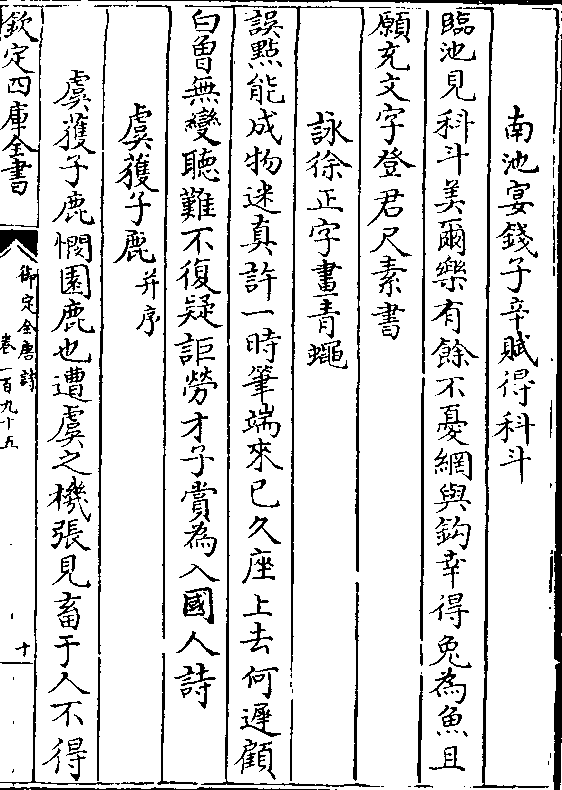 南池宴錢子辛賦得科斗
臨池見科斗羙爾樂有餘不憂網與鈎幸得免為魚且
願充文字登君尺素書
詠徐正字畫青蠅
誤點能成物迷真許一時筆端來已久座上去何遲顧
白曾無變聽難不復疑詎勞才子賞為入國人詩
虞獲子鹿并序
虞獲子鹿憫園鹿也遭虞之機張見畜于人不得
欽定四庫全書
御定全唐詩
卷一百九十五
十